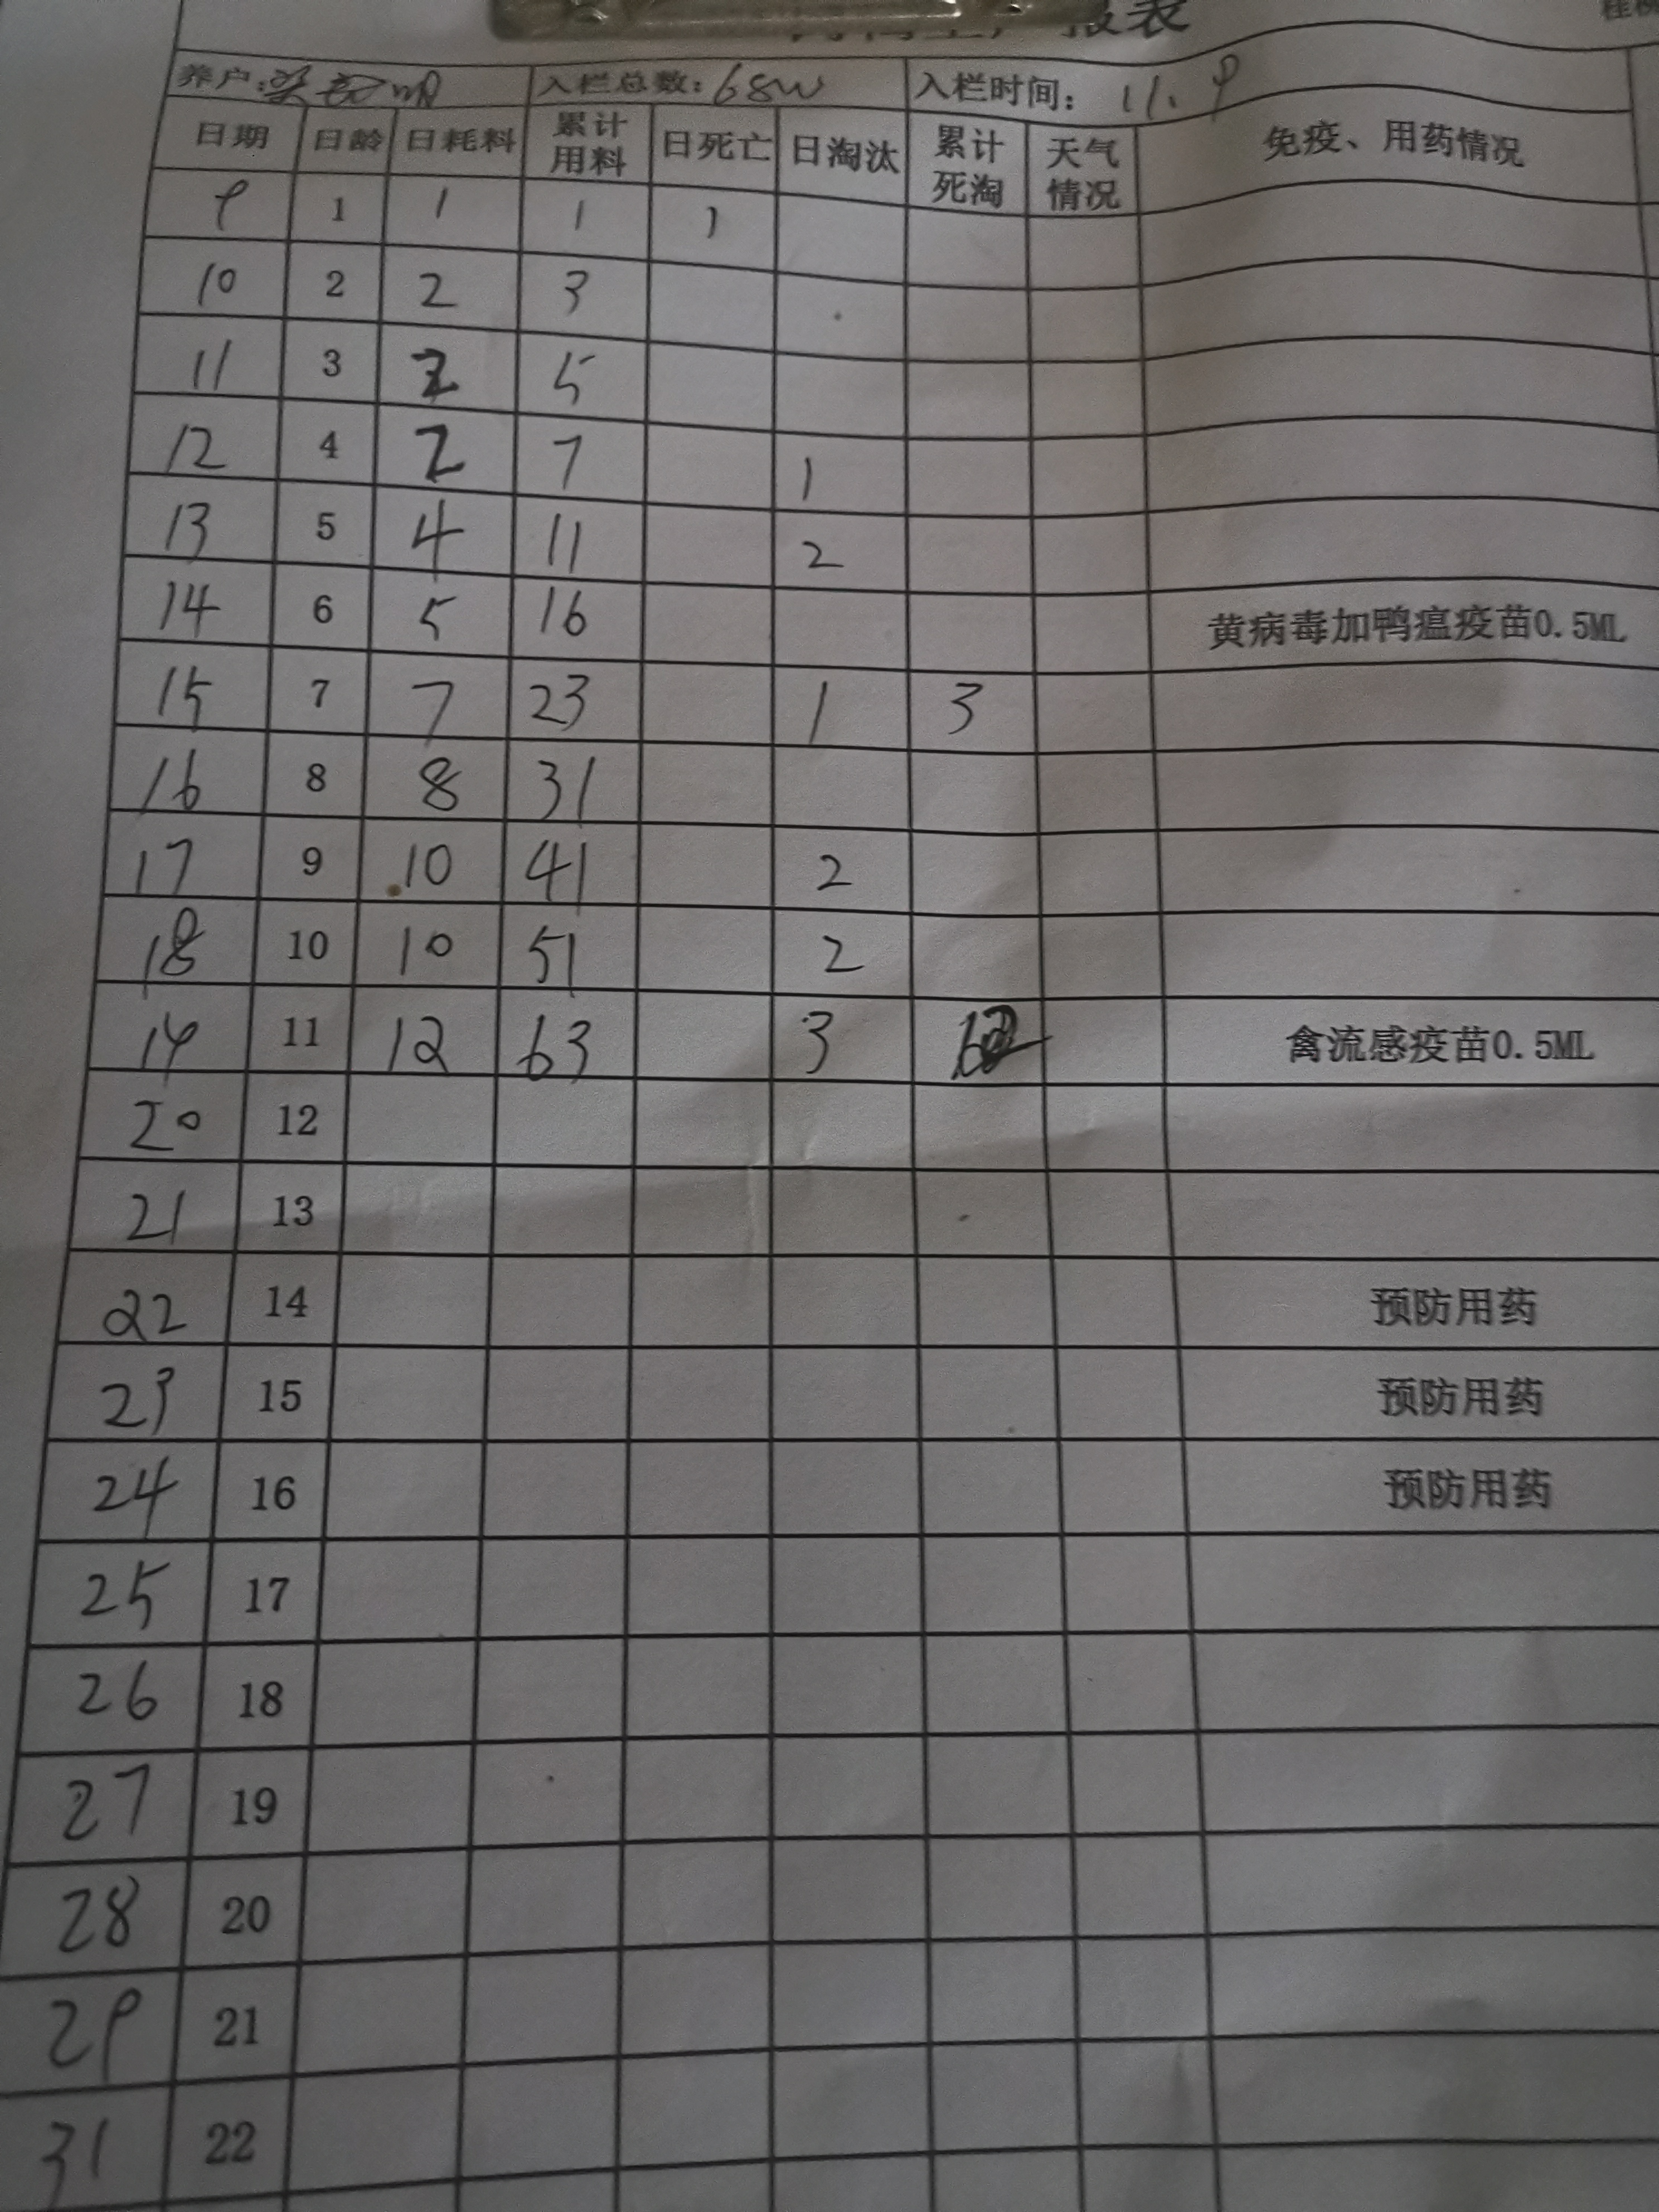 报表
养户: 入栏总数: 6800 入栏时间: 11.9
日期 日龄 日耗料 累计用料 日死亡 日淘汰 累计死淘 天气情况 免疫、用药情况
9 1 1 1 1
10 2 2 3
11 3 2 5
12 4 2 7 1
13 5 4 11 2
14 6 5 16 黄病毒加鸭瘟疫苗0.5ML
15 7 7 23 1 3
16 8 8 31
17 9 10 41 2
18 10 10 51 2
19 11 12 63 3 禽流感疫苗0.5ML
20 12
21 13
22 14 预防用药
23 15 预防用药
24 16 预防用药
25 17
26 18
27 19
28 20
29 21
31 22